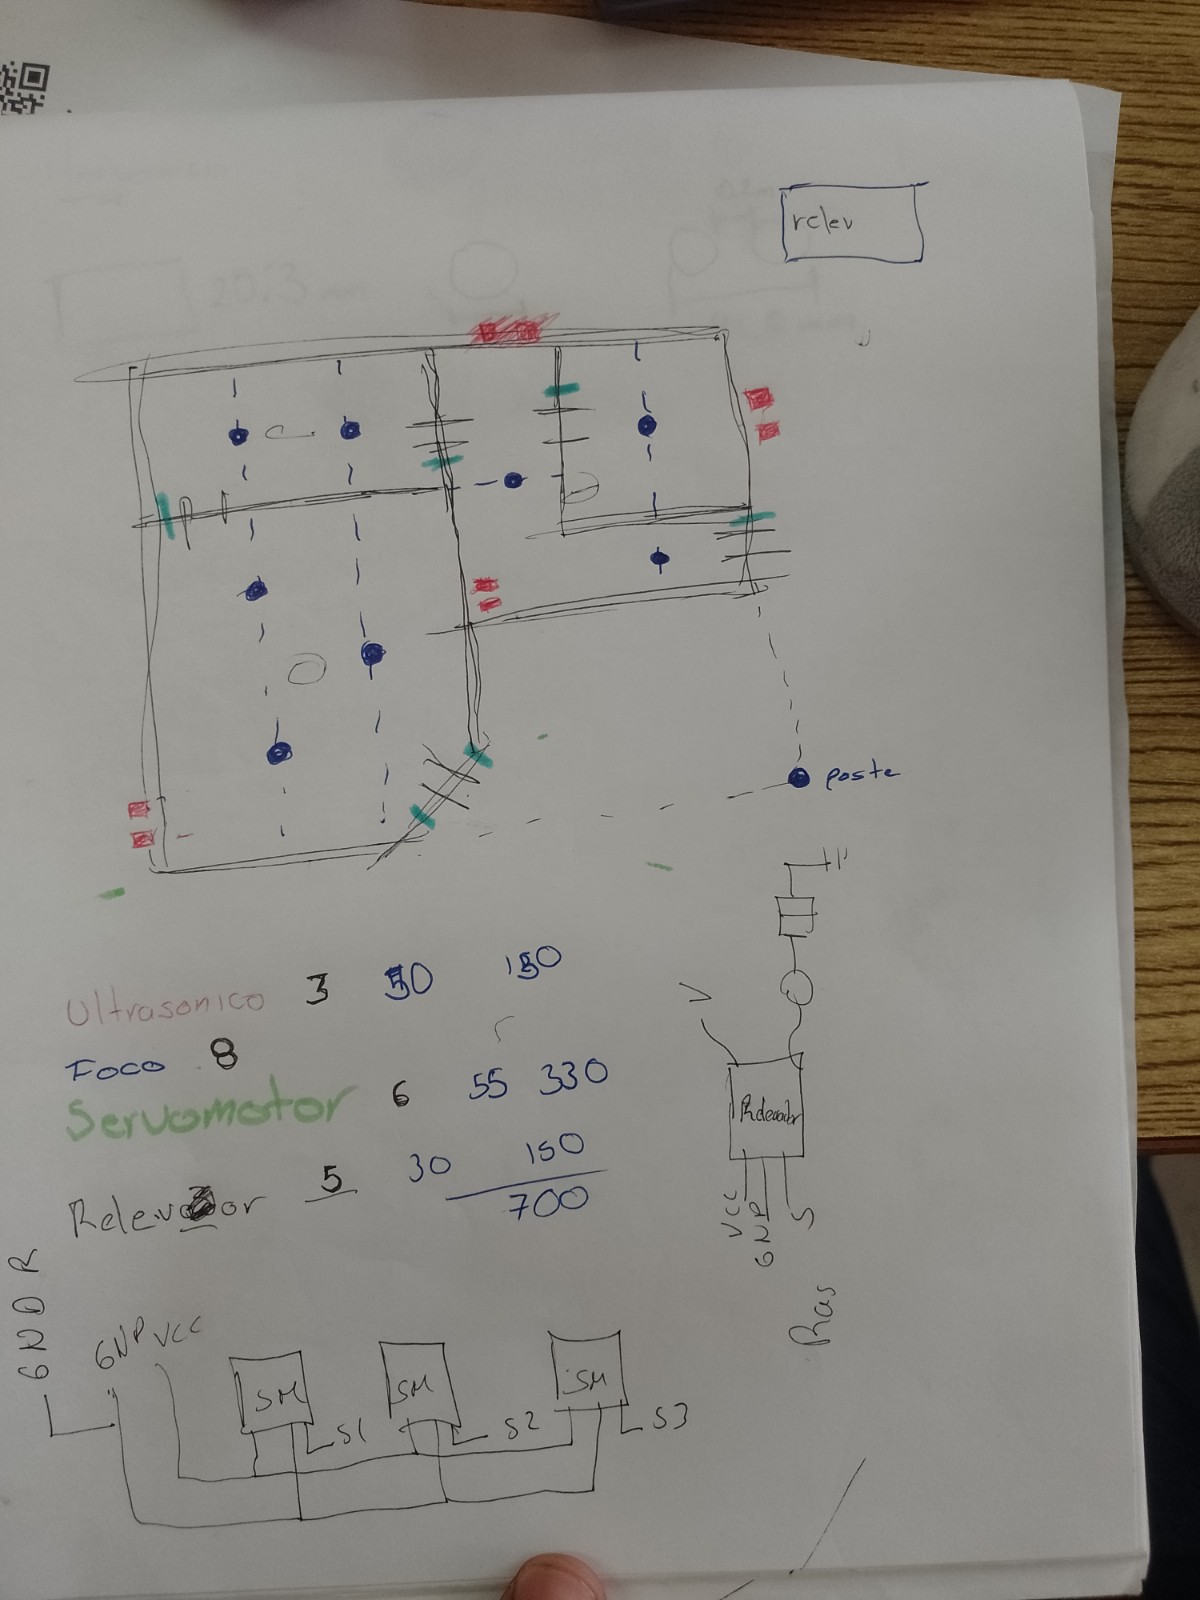 relev
poste
Ultrasonico 3 50 150
Foco 8
Servomotor 6 55 330
Relevador 5 30 150
700
V
Relevador
VCC
GND
S
Ras
GNDR
GND VCC
SM
SM
SM
S1
S2
S3